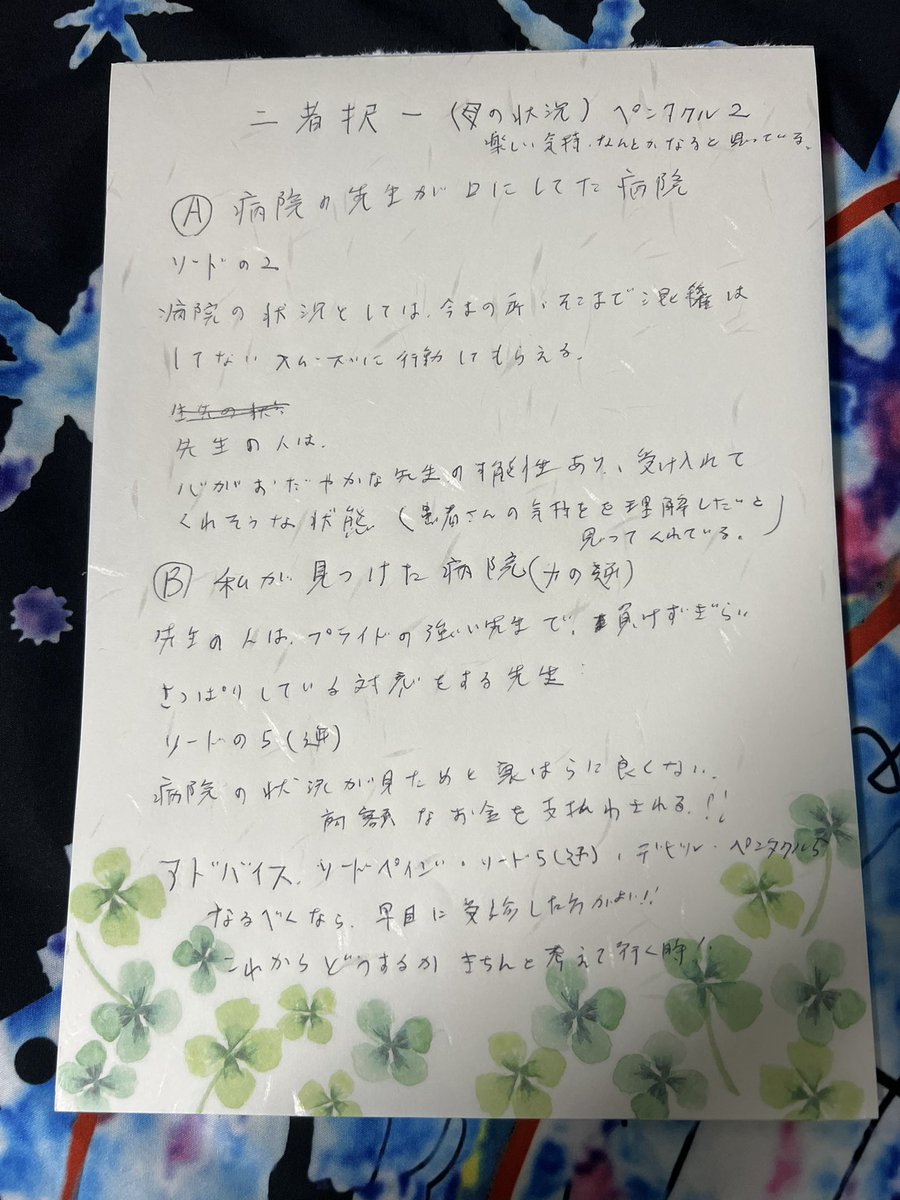 二者択一(母の状況) ペンタクル2
楽しい気持、なんとかなると思っている。
Ⓐ 病院の先生が口にしてた病院
ソードの2
病院の状況としては、今までの所、そこまで混雑は
してないスムーズに行動してもらえる。
先生の人は、
心がおだやかな先生の可能性あり、受け入れて
くれそうな状態(患者さんの気持をを理解したいと
思ってくれている。)
Ⓑ 私が見つけた病院(力の逆)
先生の人は、プライドの強い先生で、負けずぎらい
さっぱりしている対応をする先生
ソードの5(逆)
病院の状況が見ためと裏はらに良くない、
高額なお金を支払わされる!!
アドバイス、ソードペイジ・ソード5(逆)・デビル・ペンタクル5
なるべくなら、早目に受診した方がよい!!
これからどうするかきちんと考えて行く時!